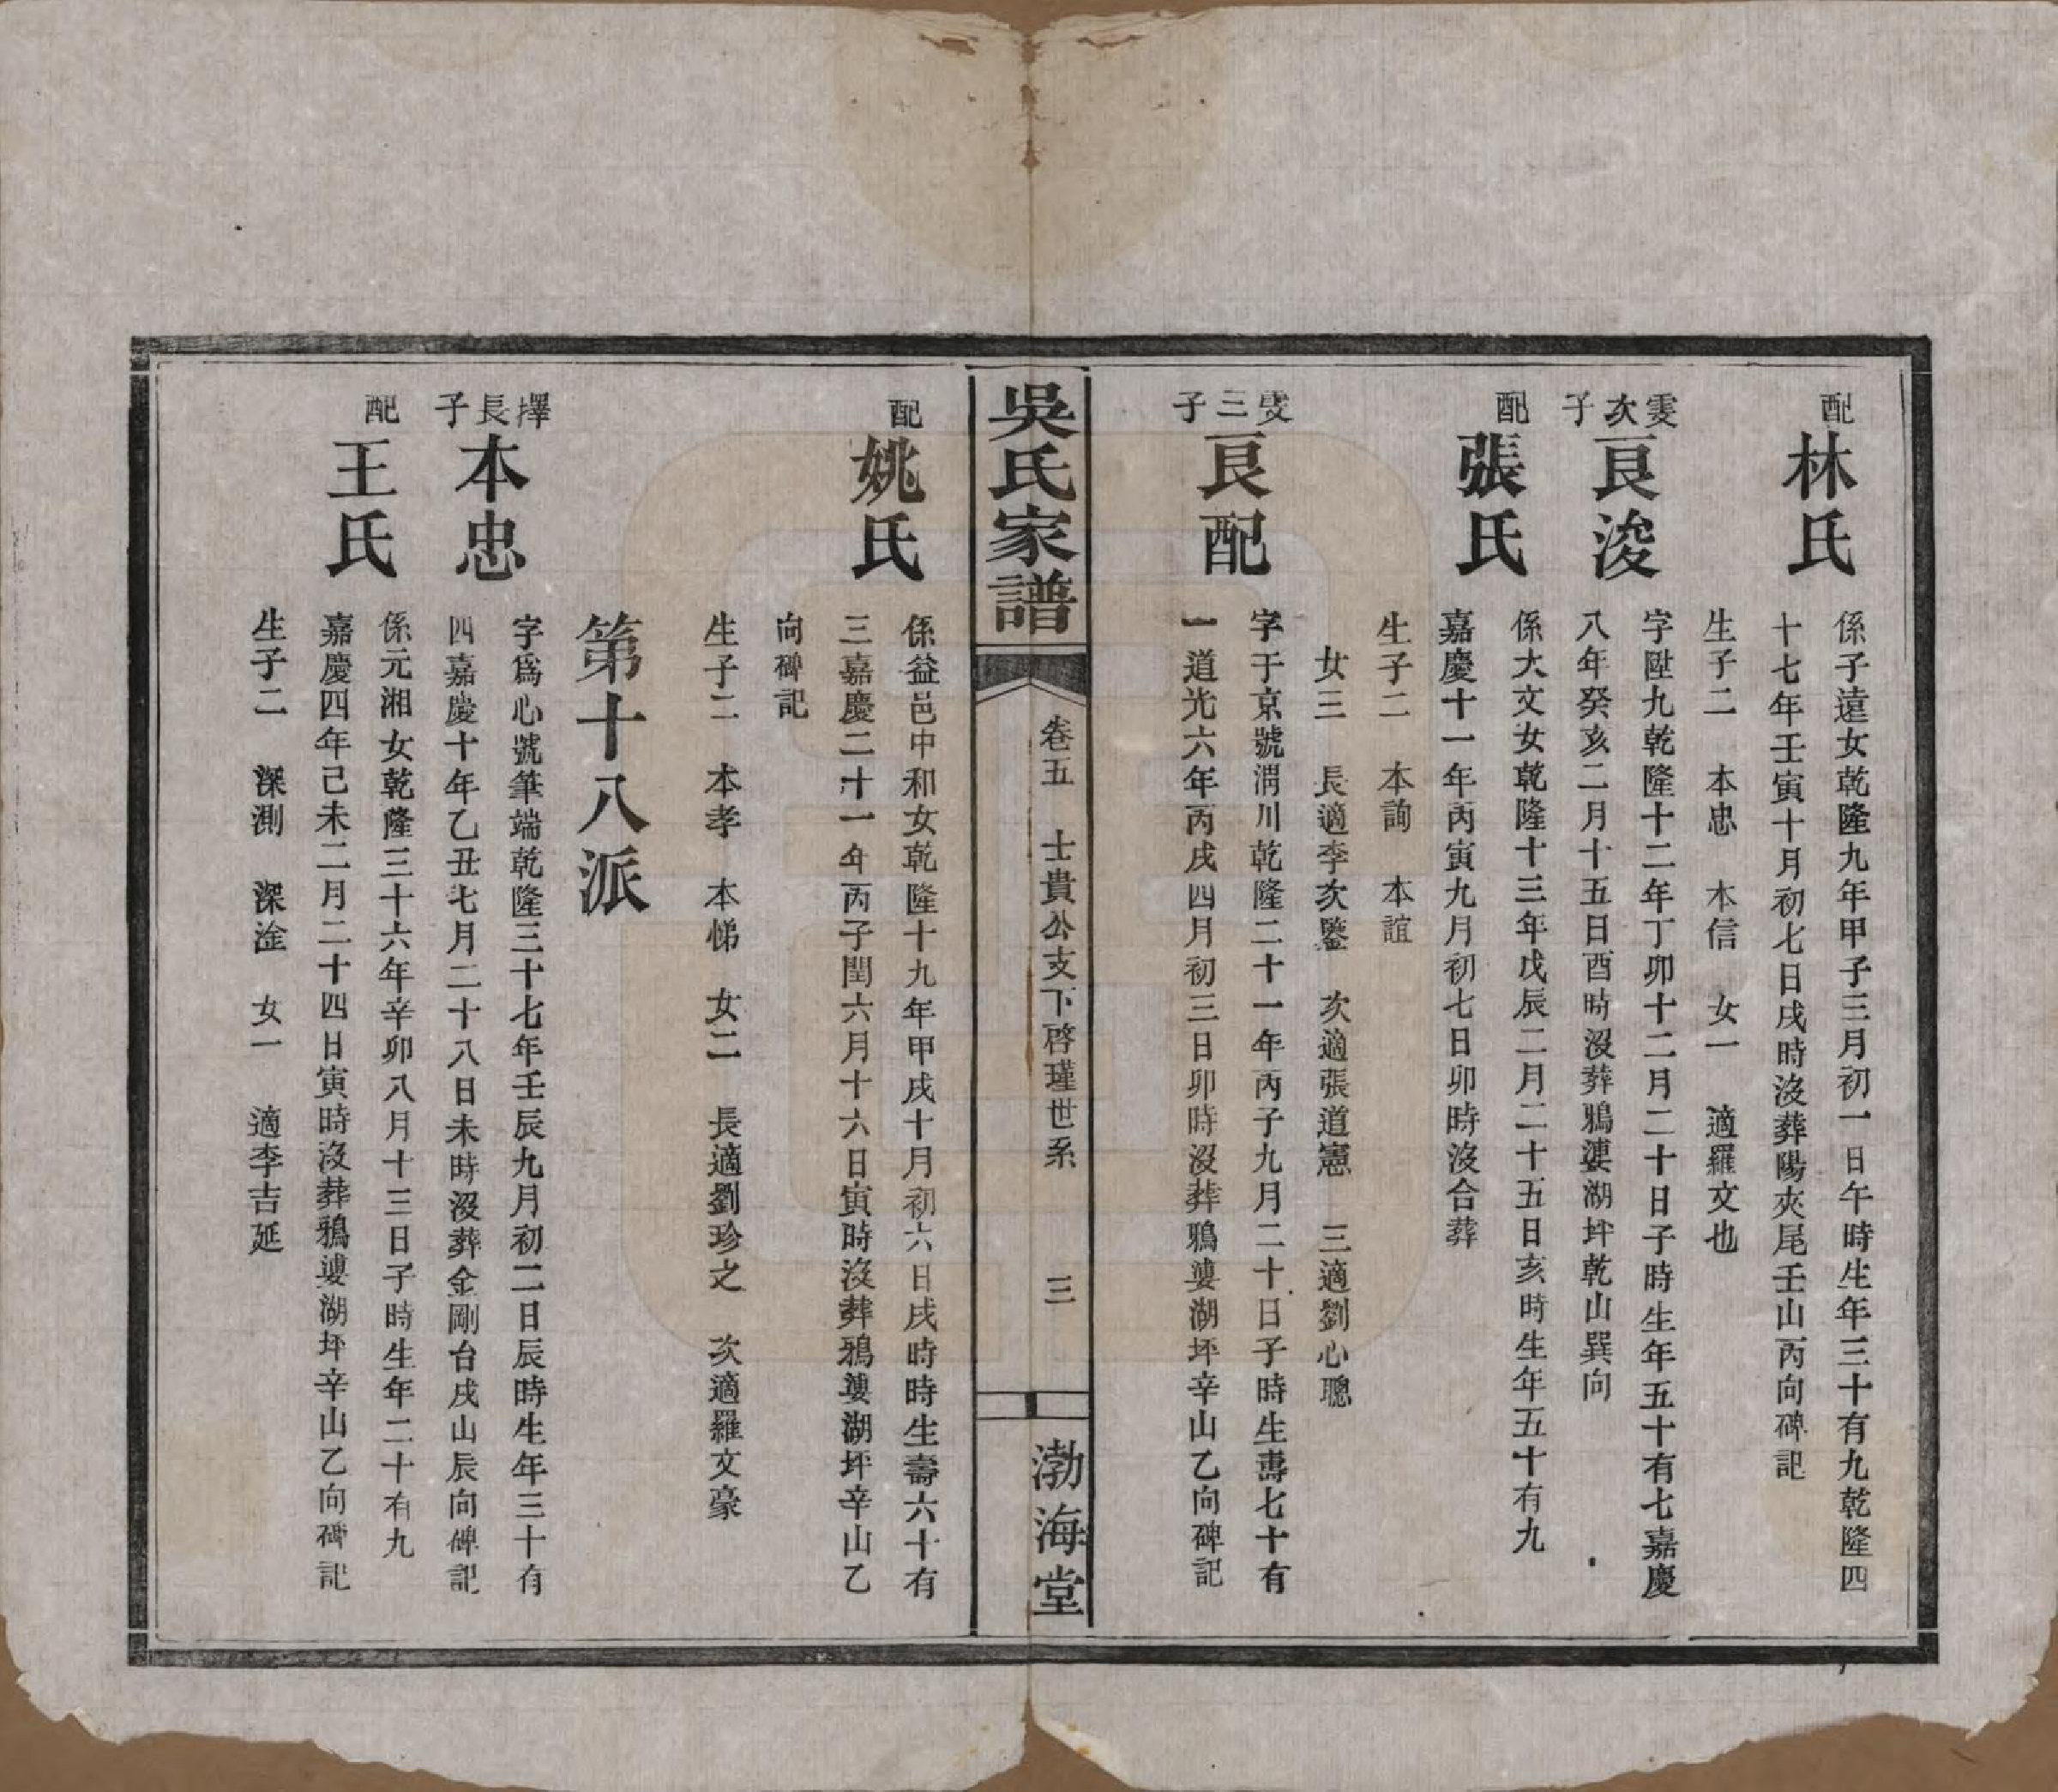 配
林氏
係子遠女乾隆九年甲子三月初一日午時生年三十有九乾隆四
十七年壬寅十月初七日戌時沒葬陽夾尾壬山丙向碑記
生子二　本忠　本信　女一　適羅文也
雯次子
良浚
字陞九乾隆十二年丁卯十二月二十日子時生年五十有七嘉慶
八年癸亥二月十五日酉時沒葬鴉婁湖坪乾山巽向
配
張氏
係大文女乾隆十三年戊辰二月二十五日亥時生年五十有九
嘉慶十一年丙寅九月初七日卯時沒合葬
生子二　本詢　本誼
女三　長適李次鑒　次適張道憲　三適劉心聰
雯三子
良配
字于京號渭川乾隆二十一年丙子九月二十日子時生壽七十有
一道光六年丙戌四月初三日卯時沒葬鴉婁湖坪辛山乙向碑記
吳氏家譜
卷五　士貴公支下啓瑾世系　三
渤海堂
配
姚氏
係益邑中和女乾隆十九年甲戌十月初六日戌時時生壽六十有
三嘉慶二十一年丙子閏六月十六日寅時沒葬鴉婁湖坪辛山乙
向碑記
生子二　本孝　本悌　女二　長適劉珍之　次適羅文豪
第十八派
擇長子
本忠
字爲心號筆端乾隆三十七年壬辰九月初二日辰時生年三十有
四嘉慶十年乙丑七月二十八日未時沒葬金剛台戌山辰向碑記
配
王氏
係元湘女乾隆三十六年辛卯八月十三日子時生年二十有九
嘉慶四年己未二月二十四日寅時沒葬鴉婁湖坪辛山乙向碑記
生子二　深測　深淦　女一　適李吉延